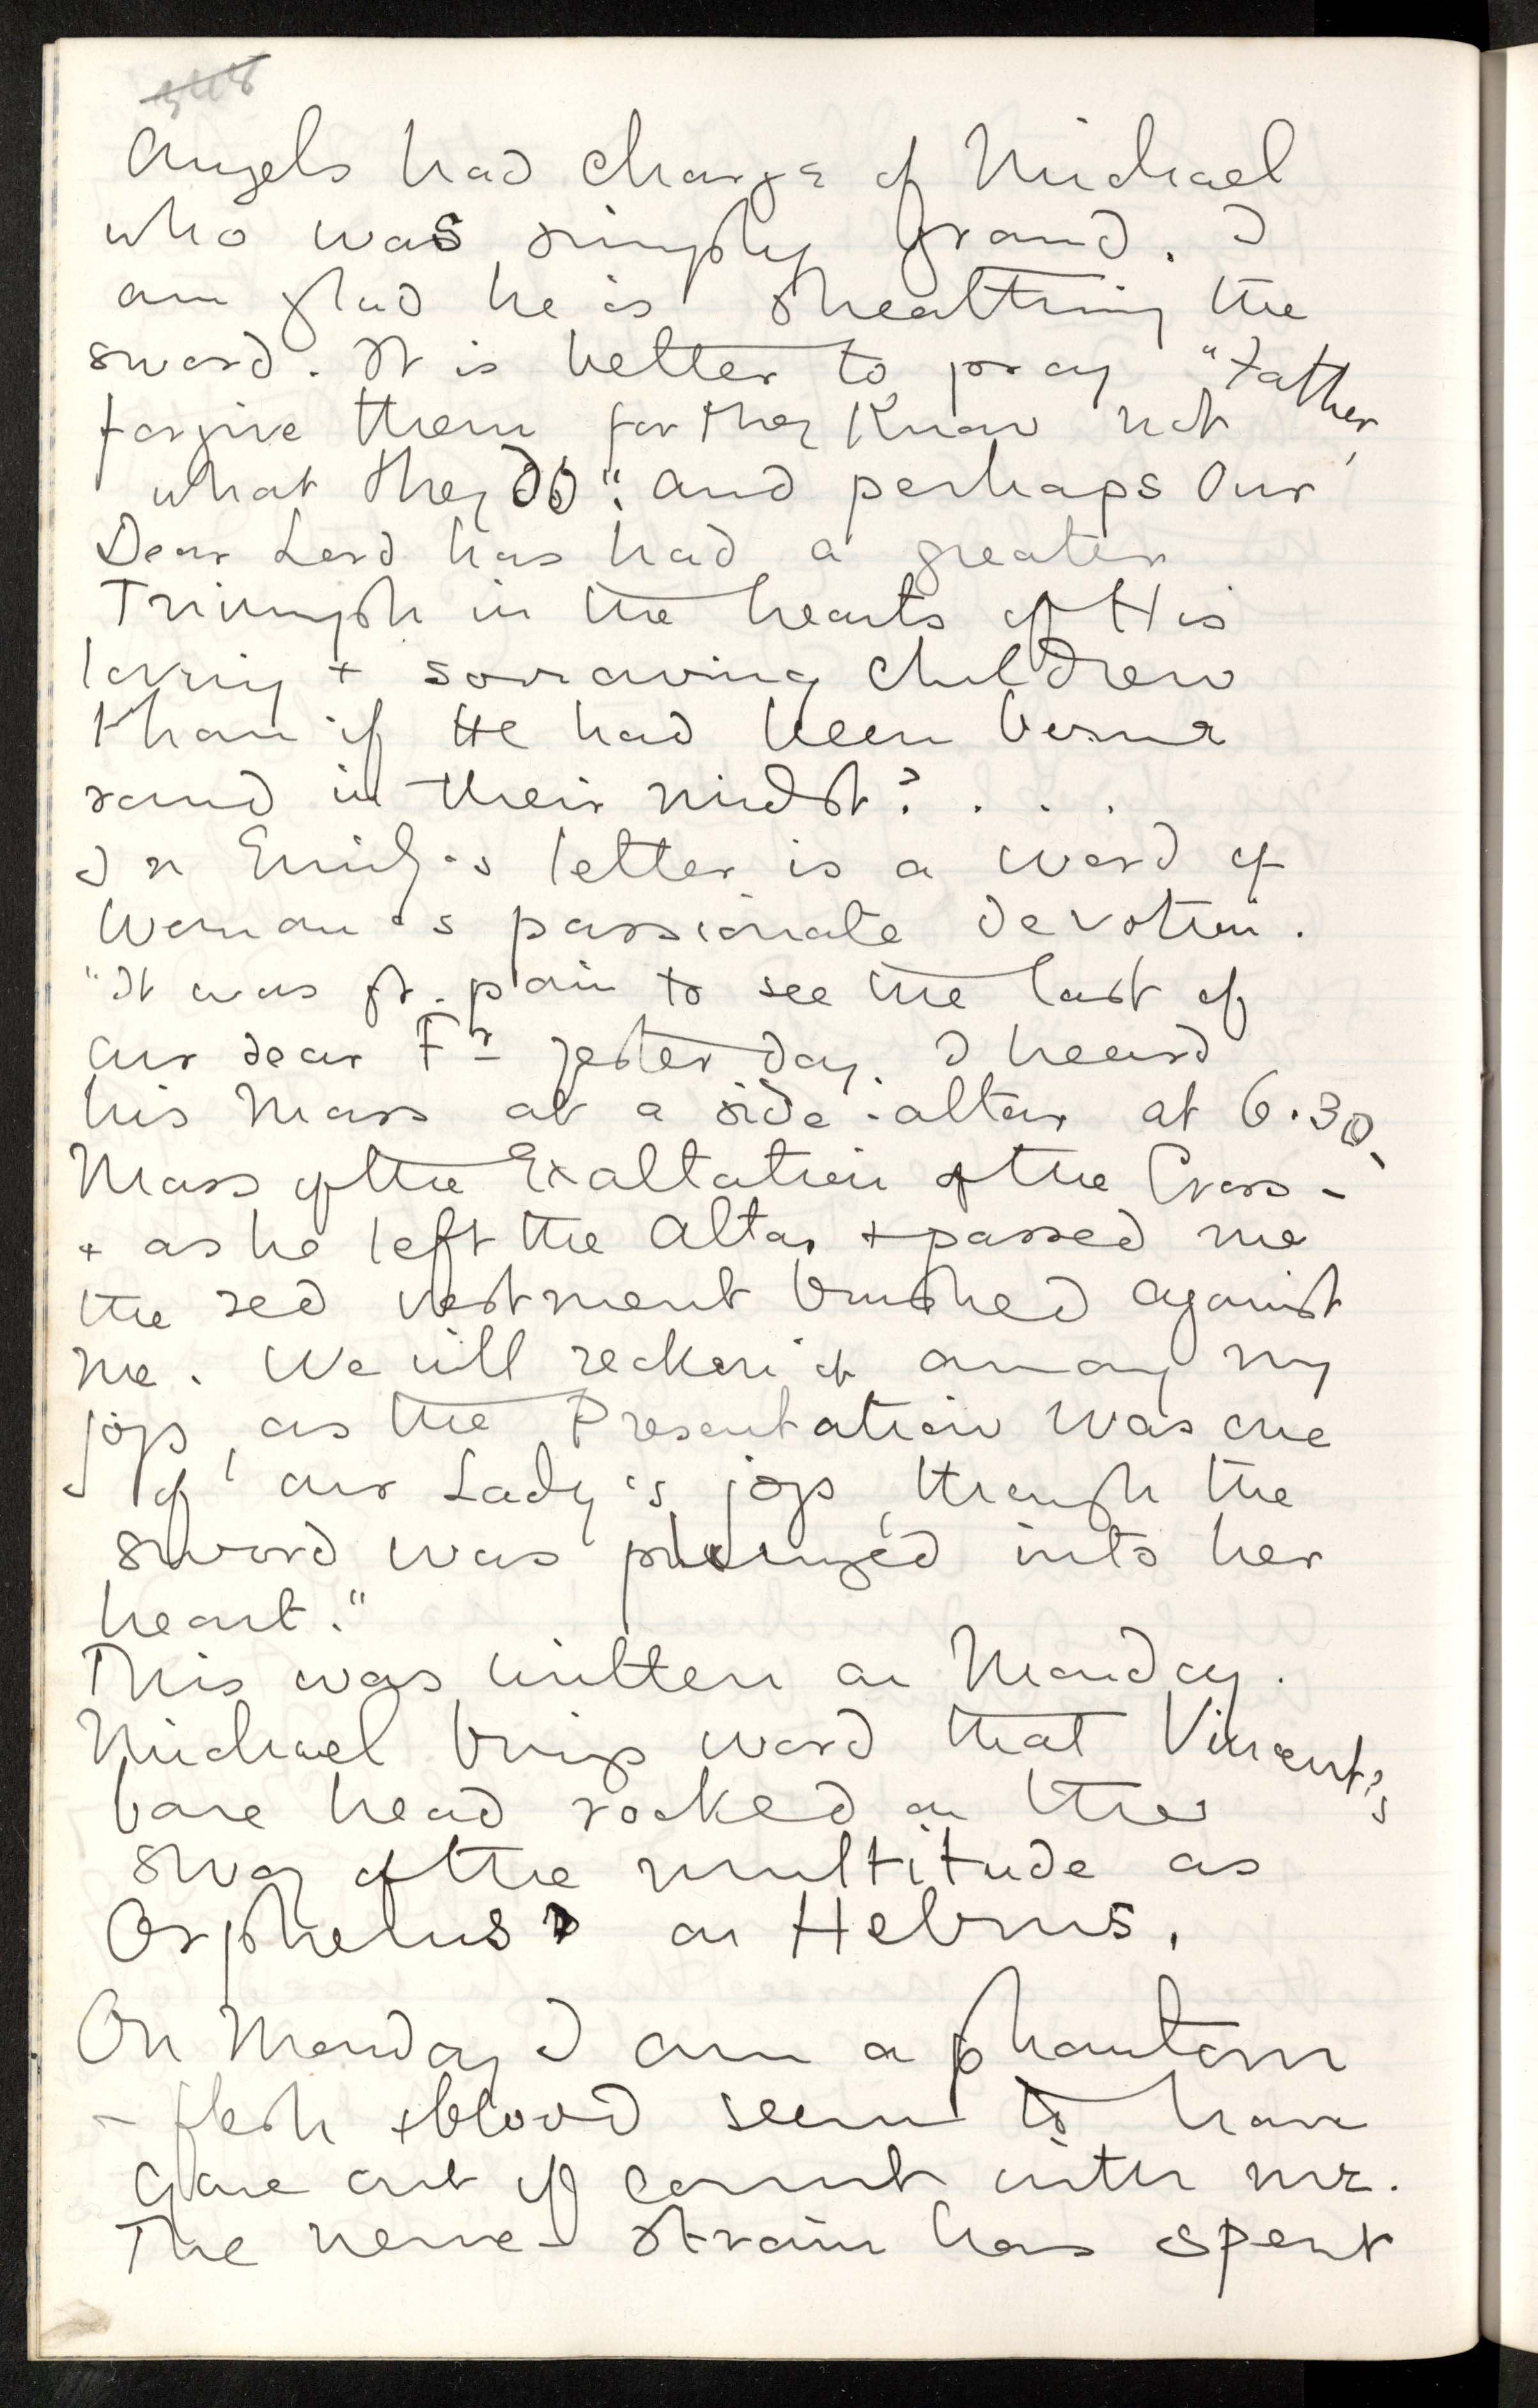 Angels had charge of Michael
who was simply grand. I
am glad he is sheathing the
sword. It is better to pray "Father,
forgive them for they know not
what they do": and perhaps Our
Dear Lord has had a greater
Triumph in the hearts of His
loving & sorrowing children
than if He had been borne
round in their midst? . . .
In Emily's letter is a word of
Woman's passionate devotion.
"It was gt. pain to see the last of
our dear Fr yesterday. I heard
his Mass at a side-altar at 6.30,
Mass of the Exaltation of the Cross -
& as he left the Altar & passed me
the red vestment brushed against
me. We will reckon it among my
joys, as the Presentation was one
of our Lady's joys, though the
sword was plunged into her
heart."
This was written on Monday.
Michael brings word that Vincent's
bare head rocked on the
sway of the multitude as
Orpheus' on Hebrus.
On Monday I am a phantom
- flesh & blood seem to have
gone out of count with me.
The nerve-strain has spent